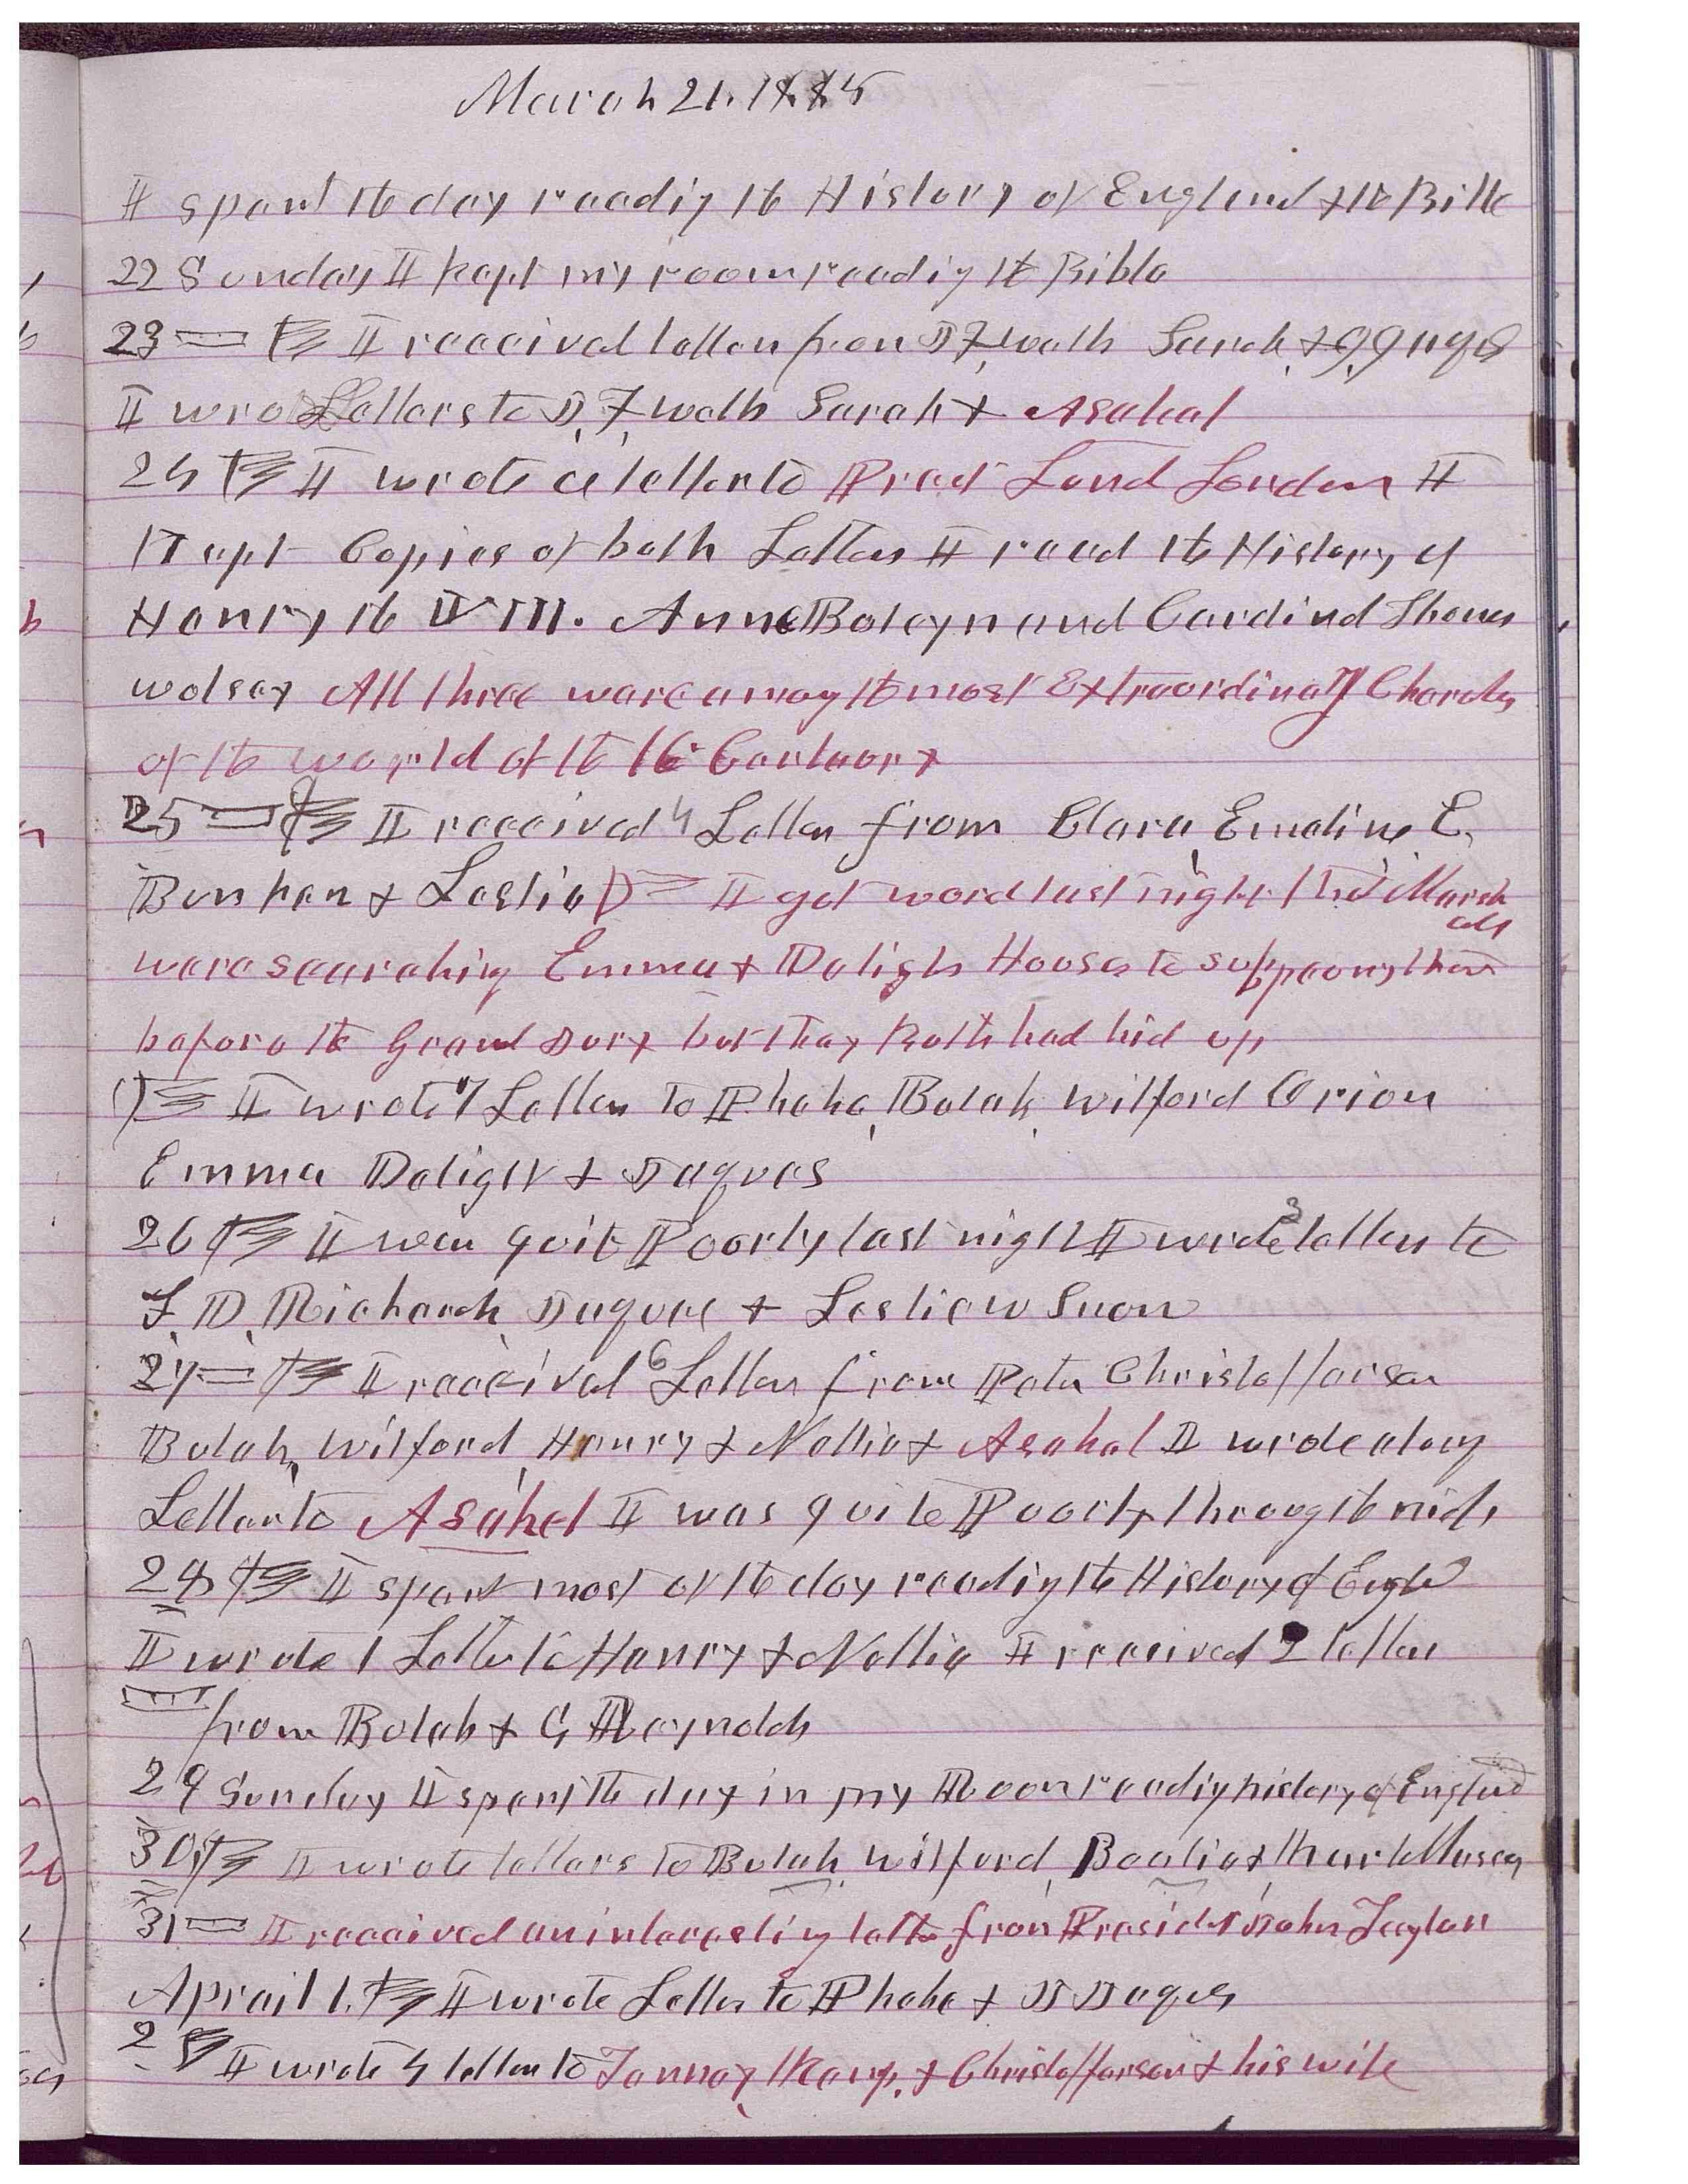 March 21. 1885
I spent the day reading the History of England & the Bible
22 Sunday I kept my room reading the Bible
23 I received letters from D, H, wells Sarah, &
I wrote Letters to D, H, wells Sarah & Asahel
24 I wrote a letter to Presdt Lund London I
Kept Copies of both Letters I read the History of
Henry the VIII. Anne Boleyn and Cardinal Thomas
wolsey All three ware amoung the most Extraordinary Charcters
of the world of the 16 Centuary
25 I received 4 Letters from Clara, Emeline, E.
Bunker & Leslie I got word last night that Marsh
als
were searching Emma & Delights Houses to suppeony them
before the Grand Jury but they Both had hid up
I wrote 7 Letters To Phebe, Bulah, Wilford Orion
Emma Delight & Jaques
26 I was quite Poorly last night I wrote 3 letters to
F. D. Richards, Jaques & Leslie W Snow
27 I received 6 Letters from Peter Christofferson
Bulah, Wilford, Henry & Nellie & Asahel I wrote a long
Letter to Asahel I was quite Poorly through the night
28 I spent most of the day reading the History of Engld
I wrote 1 Letter to Henry & Nellie I received 2 letters
from Bulah & G Reynolds
29 Sunday I spent the day in my Room reading history of England
30 I wrote letters to Bulah, Wilford,
31 I received an interesting letter from President John Taylor
Aprail 1. I wrote Letters to Phebe & J Jaques
2 I wrote 4 letters to & Christofferson & his wife